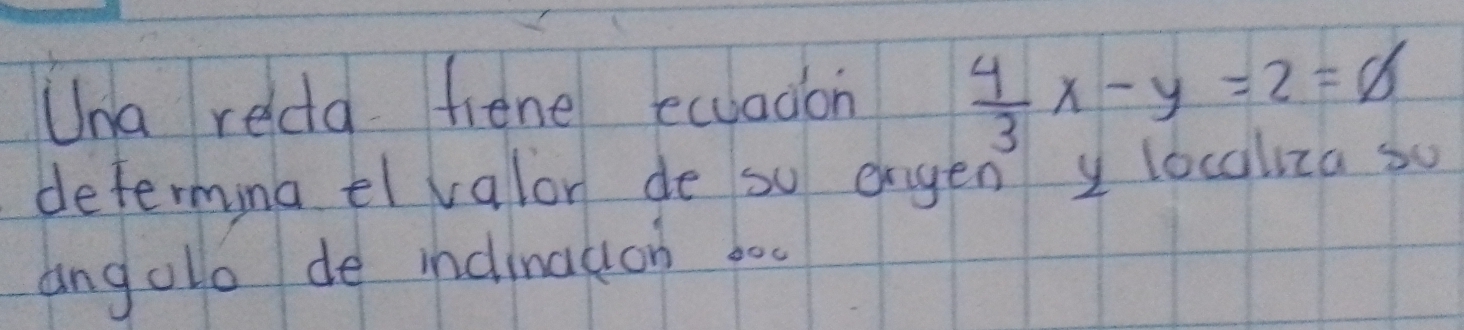 Una recta tiene ecuación 4/3 x - y = 2 = 0
determina el valor de su origen y localiza su
angulo de inclinación ...